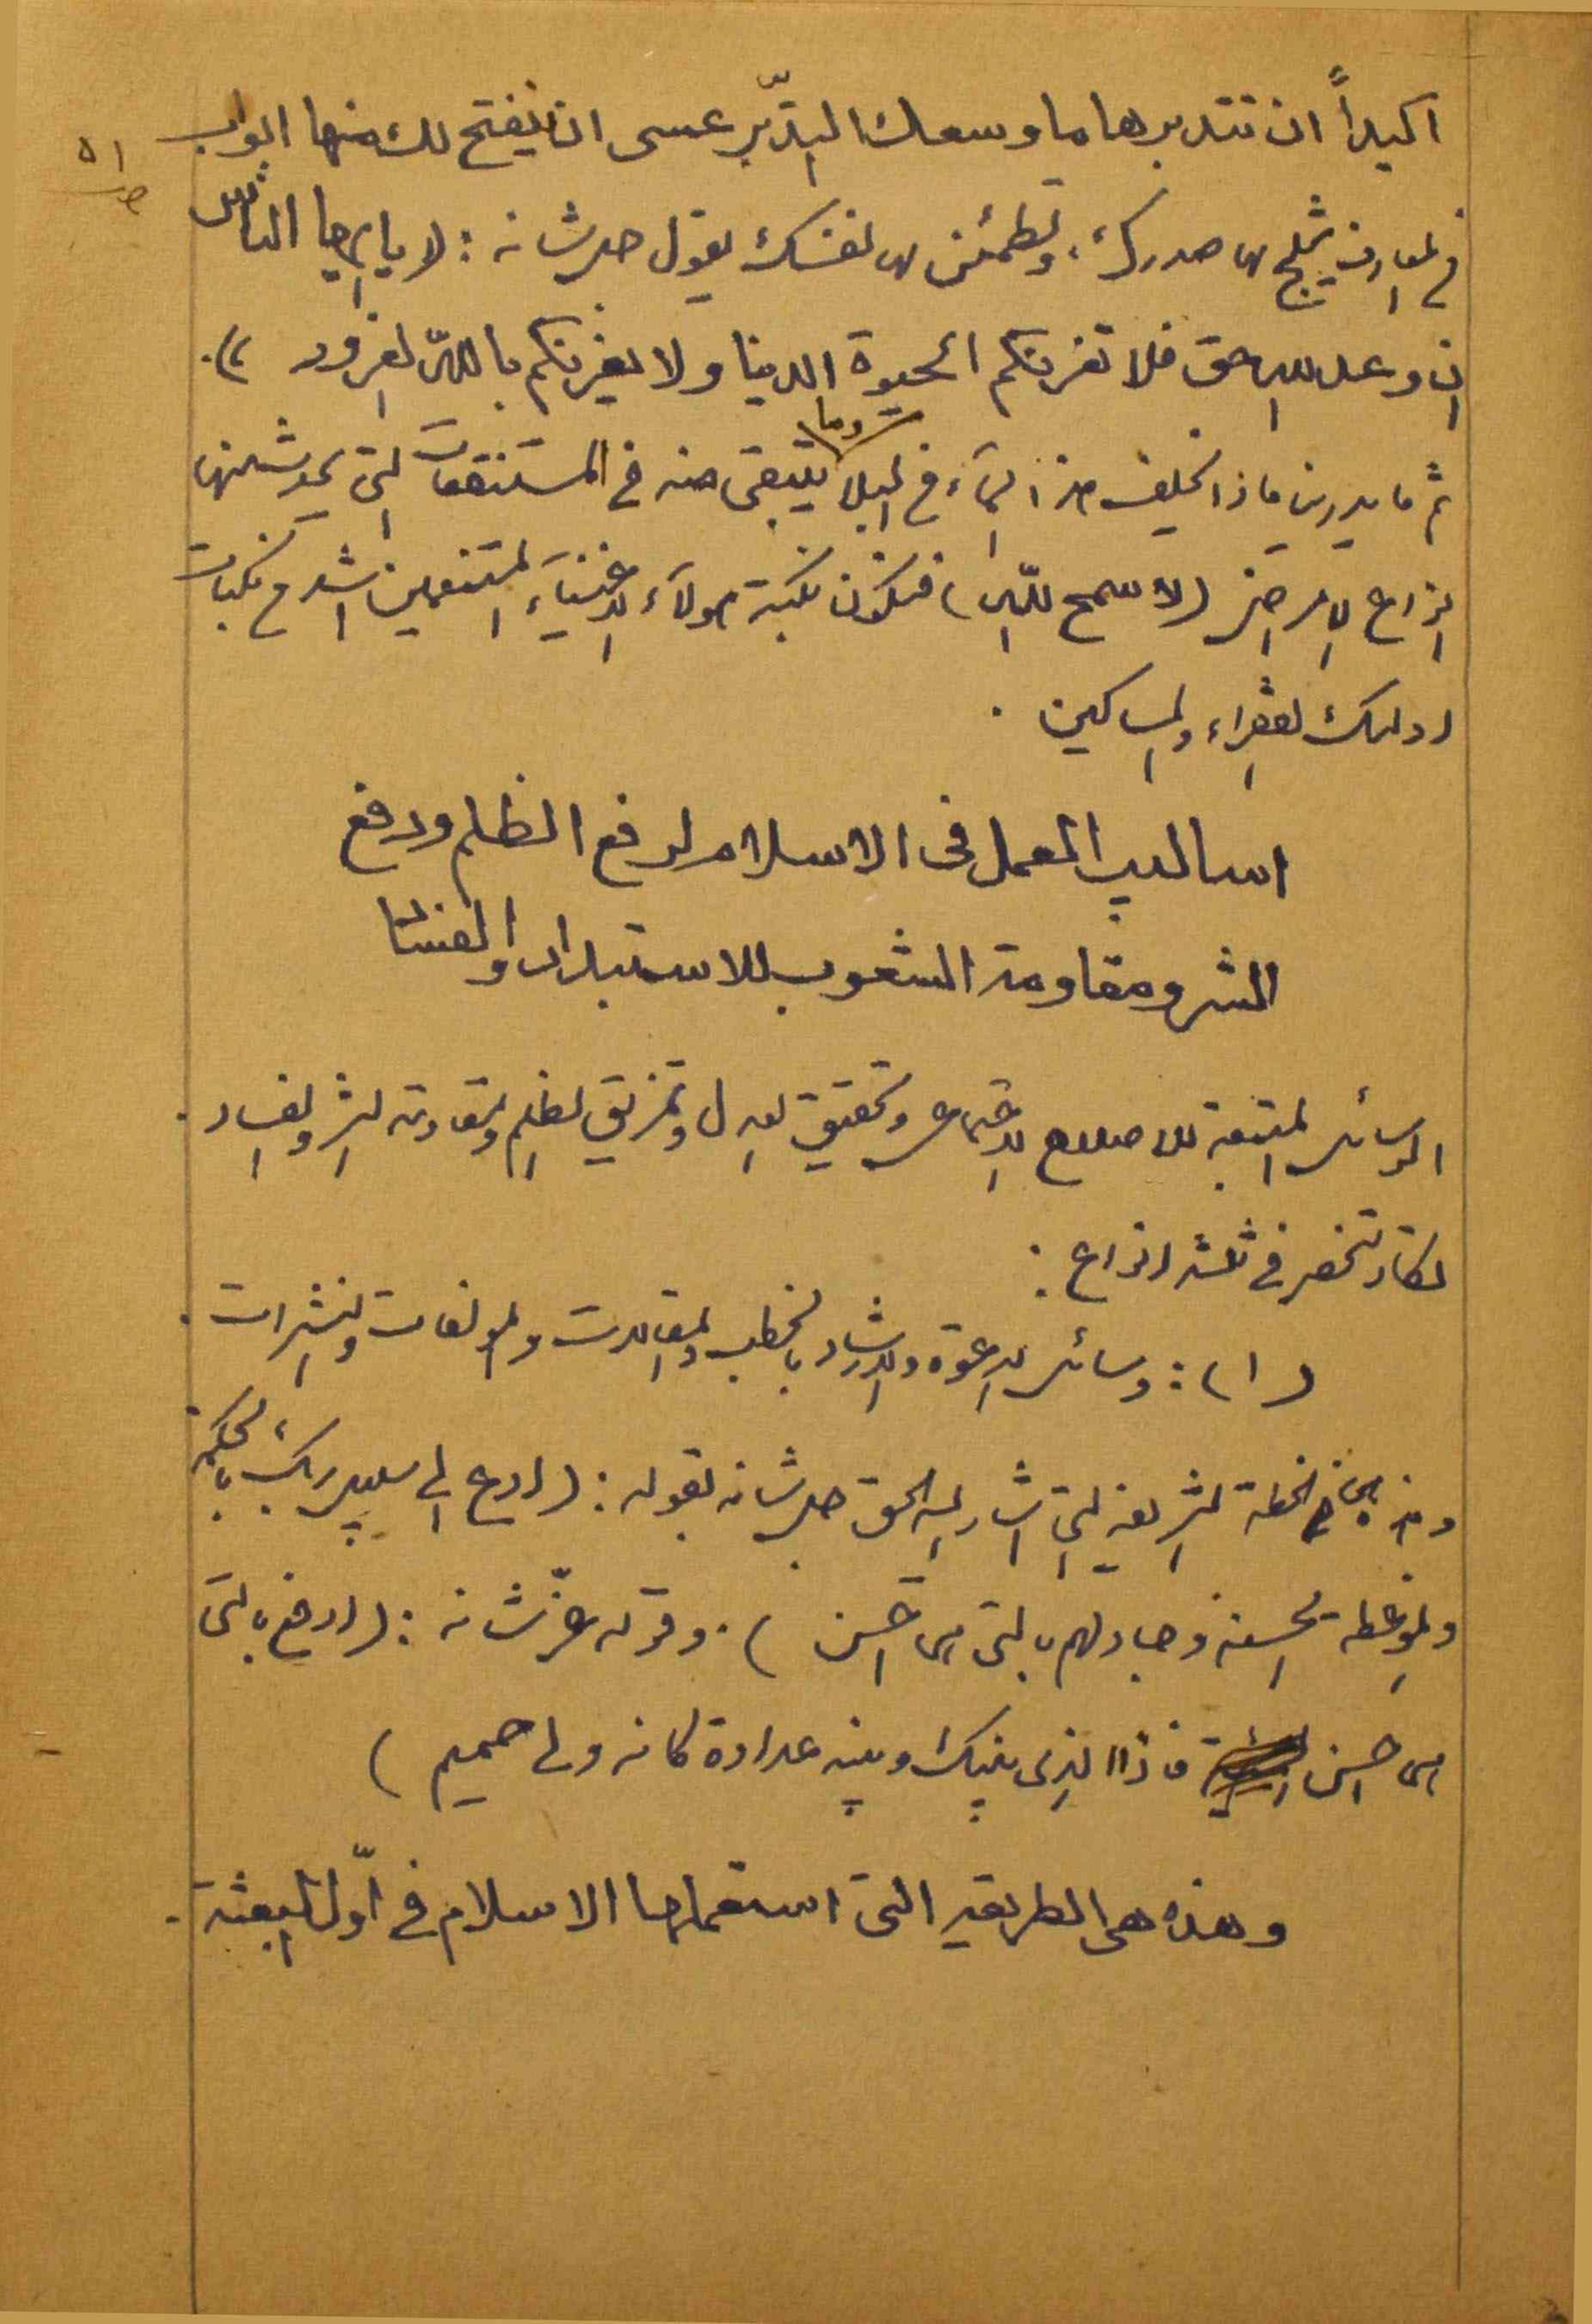 اكيداً ان تتدبرها ما وسعك التدبّر عسى ان ينفتح لك منها ابواب
ص ٥١
في المعارف يثلج بها صدرك، وتطمئن بها نفسك يقول جل شانه : (يا ايها الناس
ان وعد الله حق فلا تغرنكم الحيوة الدينا ولا يغرنكم بالله الغرور ).
ثم ما يدرين ماذا تخلف هذا الماء في البلا وما يتبقى منه في المستنقعات التي يحدث منها
انواع الامراض (لا سمح الله) فتكون نكبة هولاء الاغنياء المتنعمين اشد من نكبات
اولئك الفقراء والمساكين .
اساليب العمل فى الاسلام لرفع الظلم ودفع
الشر ومقاومة الشعوب للاستبداد والفساد
الوسائل المتبعة للاصلاح الاجتماعى وتحقيق العدل وتمزيق الظلم ومقاومة الشر والفساد .
تكاد تنحصر في ثلثه انواع :
(١) : وسائل الدعوة والارشاد بالخطب والمقالات والمولفات والنشرات .
وهذه هى الخطة الشريفه التي اشار اليه الحق جل شانه بقوله : (ادع الى سبيل ربك بالحكمة
والموعظه الحسنه وجادلهم بالتى هى احسن ) . وقوله عزّ شانه : (ادفع بالتى
هى احسن فاذا الذى بينك وبينه عداوة كانه ولى حميم )
وهذه هى الطريقه التى استعملها الاسلام في اوّل البعثة .